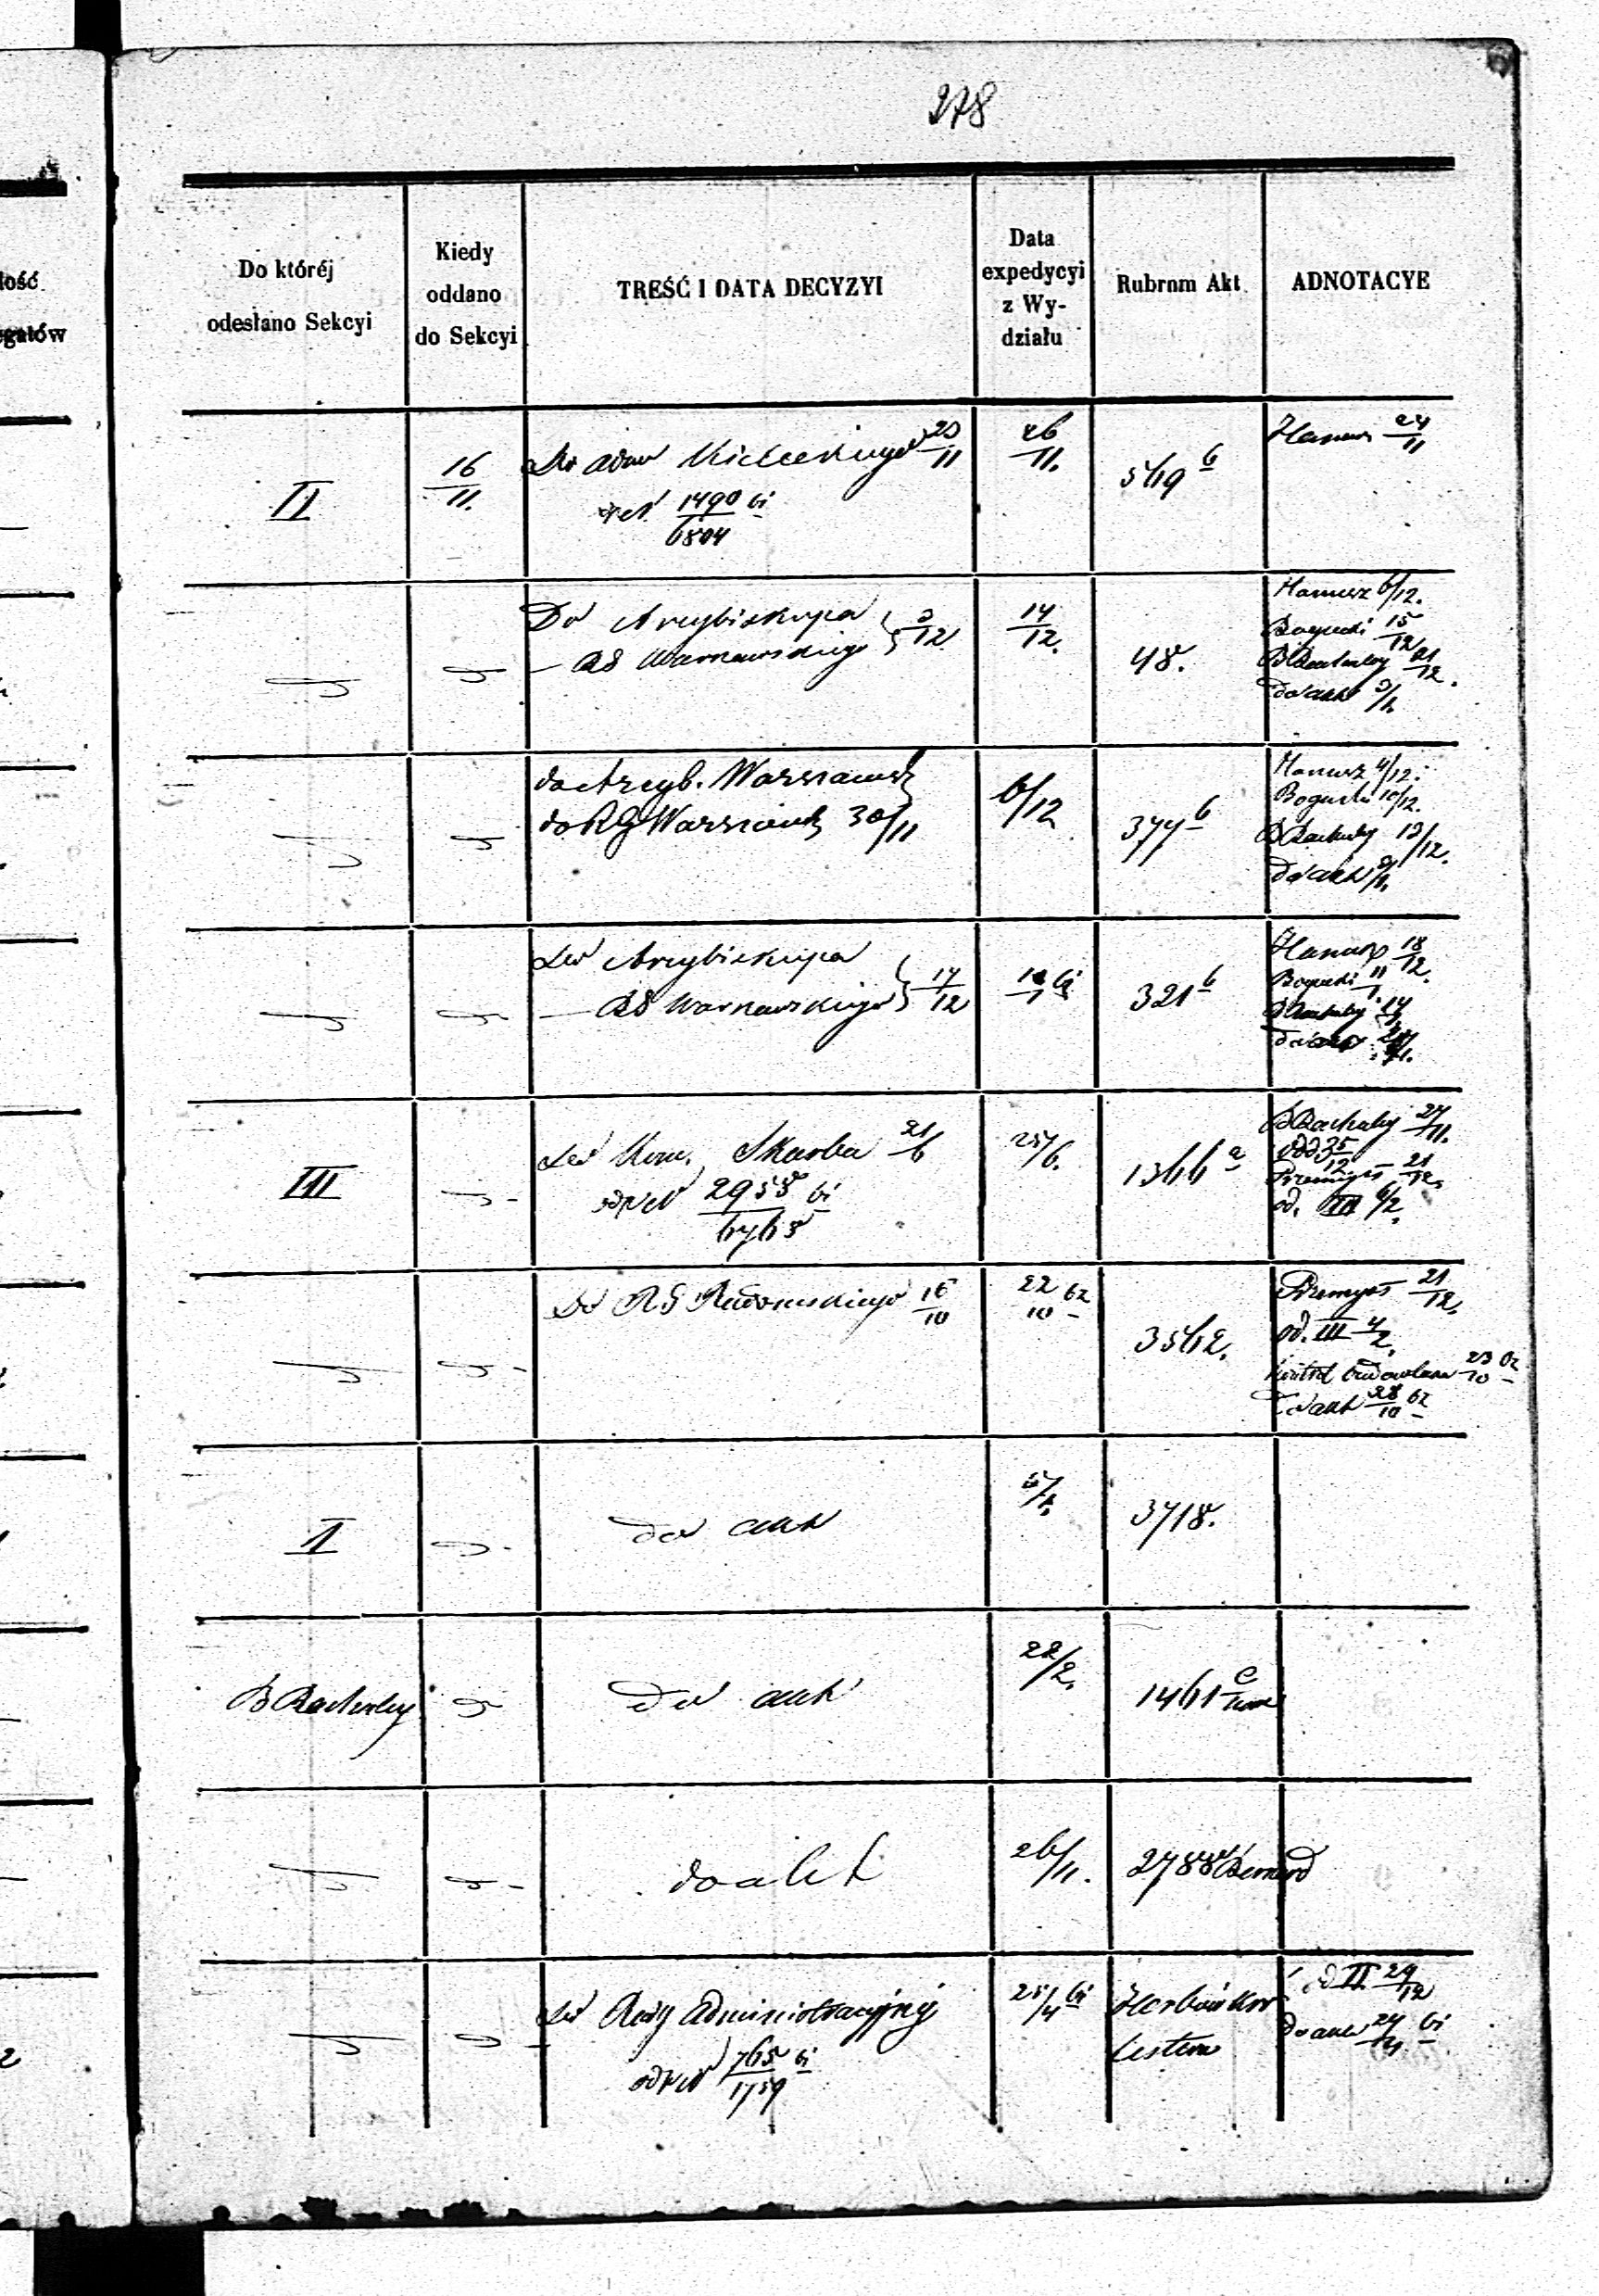 278
Do któréj
odesłano Sekcyi
Kiedy
oddano
do Sekcyi
TREŚĆ I DATA DECYZYI
Data
expedycyi
z Wy-
działu
Rubrnm Akt
ADNOTACYE
II
16/11.
Do Adm Kieleckiego 20/11
1490 bi
6804
26/11.
519 b
Hanusz 24/11
Do Arcybiskupa
— RG Warszawskiego 3/12
14/12.
48.
Hanusz 6/12.
Bogucki 15/12
B Bachuley 21/12.
do akt 3/1.
do Arcyb. Warszawsk
do RG Warszawsk 30/11
6/12
377 b
Hanusz 4/12.
Bogucki 10/12.
B Bachuley 13/12.
do akt 3/1.
Do Arcybiskupa
— RG Warszawskiego 17/12
321 b
Hanusz 18/12.
Bogucki 11/1
B Bachuley 14/1
do akt
III
Do Kom. Skarbu 21/6
odp N 2955 bi
6765
25/6.
1366 a
B Bachuley 27/11.
Przemysł 21/12.
od. III 6/2.
Do RG Radomskiego 16/10
22/10 62
3562.
Przemysł 21/12.
od. III 4/2.
budowlana 23/10 62
Do akt 28/10 62
II
do akt
3718.
B Bachuley
do akt
22/2.
1461 e
do akt
26/11.
2788 Bernard
Do Rady Administracyjnej
odp N 765 bi
1759
25/4 bi
od II 29/12
do akt 27/4 bi